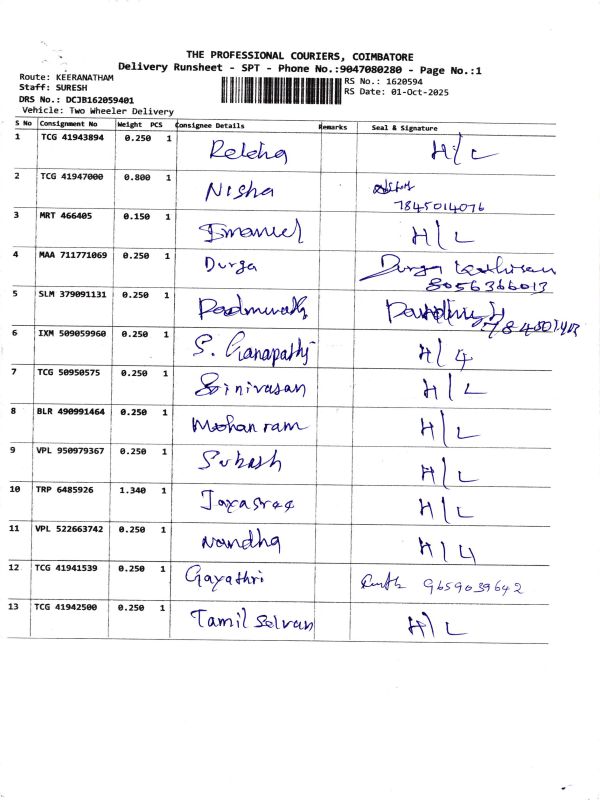 THE PROFESSIONAL COURIERS, COIMBATORE
Delivery Runsheet - SPT - Phone No.:9047080280 - Page No.:1
Route: KEERANATHAM
RS No.: 1620594
Staff: SURESH
RS Date: 01-Oct-2025
DRS No.: DCJB162059401
Vehicle: Two Wheeler Delivery
S No Consignment No Weight PCS Consignee Details Remarks Seal & Signature
1 TCG 41943894 0.250 1 Rekha H/L
2 TCG 41947000 0.800 1 Nisha
7845014076
3 MRT 466405 0.150 1 Emanuel H/L
4 MAA 711771069 0.250 1 Durga Durga
8056366013
5 SLM 379091131 0.250 1
6 IXM 509059960 0.250 1 S. Ganapathi H/L
7 TCG 50950575 0.250 1 Srinivasan H/L
8 BLR 490991464 0.250 1 Mohan ram H/L
9 VPL 950979367 0.250 1 Subash H/L
10 TRP 6485926 1.340 1 Jayasree H/L
11 VPL 522663742 0.250 1 Nandha H/L
12 TCG 41941539 0.250 1 Gayathri 9659039642
13 TCG 41942500 0.250 1 Tamil Selvan H/L